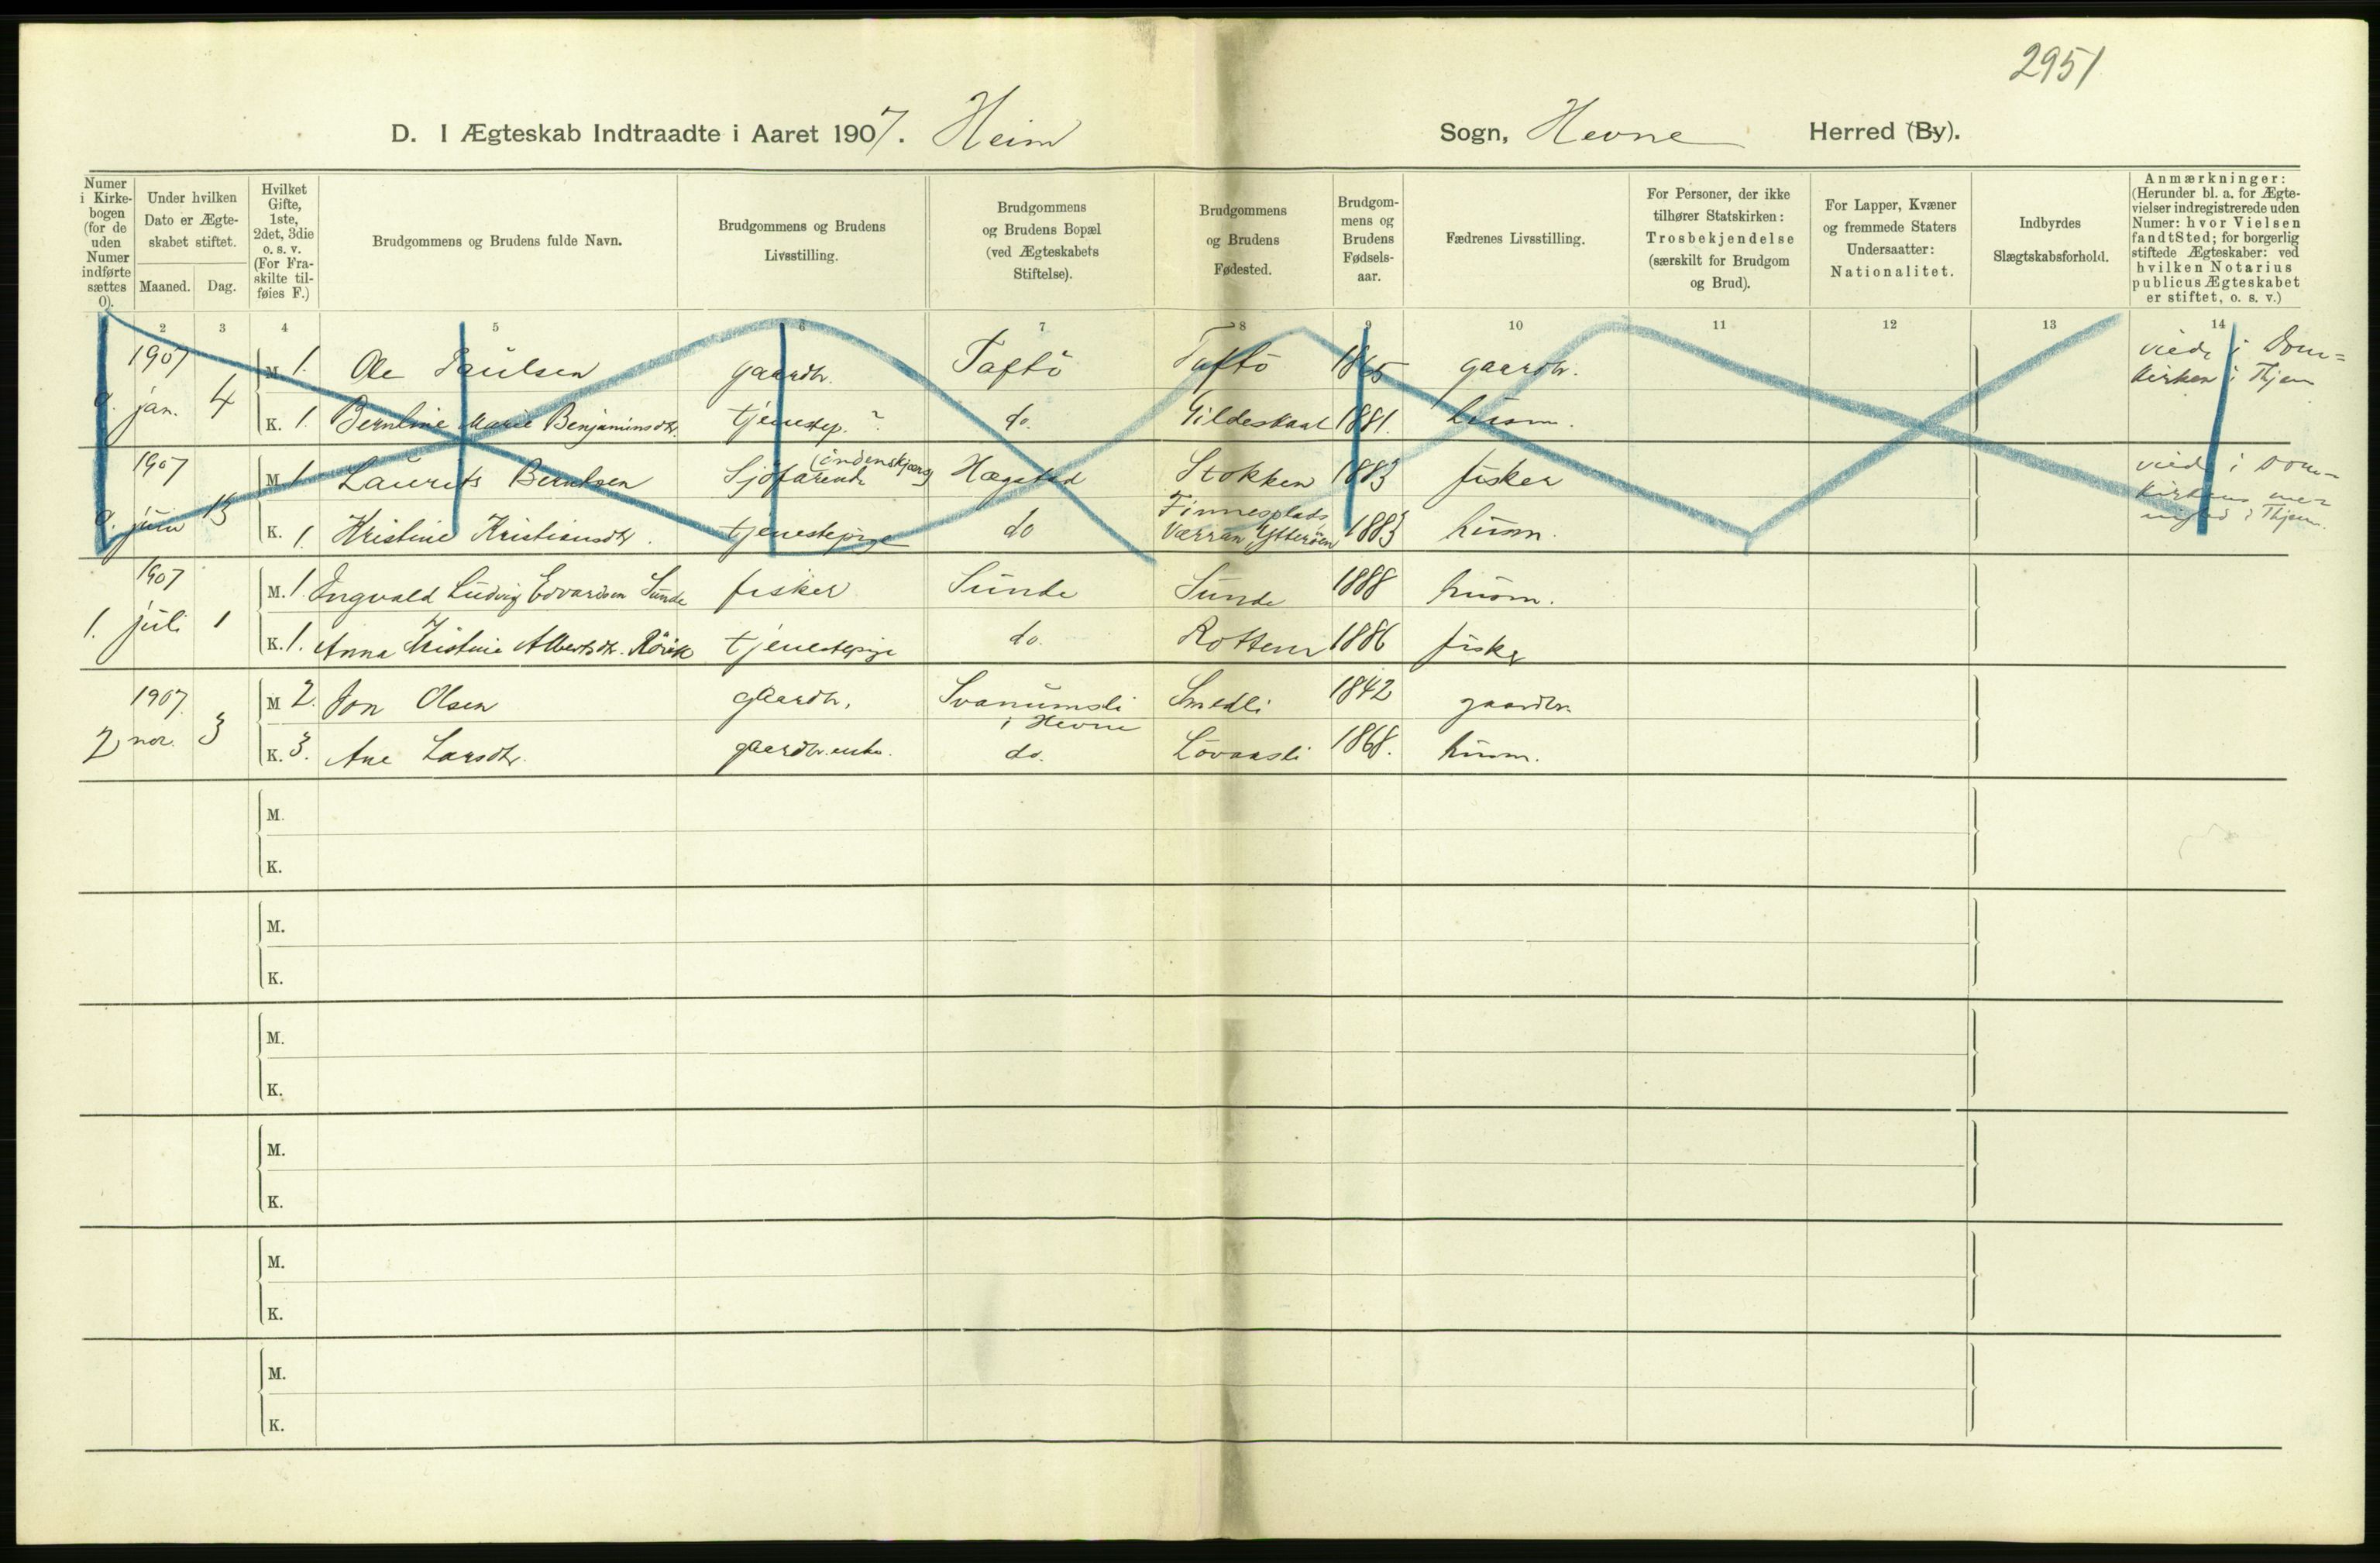 2951
D. I Ægteskab Indtraadte i Aaret 1907. Heim Sogn, Hevne Herred (By).
Numer i Kirke-bogen (for de uden Numer indførte sættes 0).
Under hvilken Dato er Ægte-skabet stiftet.
Maaned. Dag.
Hvilket Gifte, 1ste, 2det, 3die o. s. v. (For Fra-skilte til-føies F.)
Brudgommens og Brudens fulde Navn.
Brudgommens og Brudens Livsstilling.
Brudgommens og Brudens Bopæl (ved Ægteskabets Stiftelse).
Brudgommens og Brudens Fødested.
Brudgom-mens og Brudens Fødsels-aar.
Fædrenes Livsstilling.
For Personer, der ikke tilhører Statskirken: Trosbekjendelse (særskilt for Brudgom og Brud).
For Lapper, Kvæner og fremmede Staters Undersaatter: Nationalitet.
Indbyrdes Slægtskabsforhold.
Anmærkninger: (Herunder bl. a. for Ægte-vielser indregistrerede uden Numer: hvor Vielsen fandt Sted; for borgerlig stiftede Ægteskaber: ved hvilken Notarius publicus Ægteskabet er stiftet, o. s. v.)
2 3 4 5 6 7 8 9 10 11 12 13 14
1907 M 1. Ole Paulsen gaardbr. Taftö Taftö 1865 gaardbr. viede i Dom=
0. jan. 4 kirken i Thjem
K. 1. Bernline Marie Benjaminsdtr. tjenestep. ? do. Gildeskaal 1881. husm.
1907 M 1. Laurits Berntsen Sjöfarende (indenskjærs) Hægstad Stokken 1883 fisker viede i Dom-
0. juni 13 K. 1. Kristine Kristiansdtr. tjenestepige do Finnesplads Værran, Ytterøen 1883 husm.
1907 M. 1. Ingvald Ludvig Edvardsen Sunde fisker Sunde Sunde 1888 husm.
1. juli 1 K. 1. Anna Kristine Albertsdtr. Rörvik tjenestepige do. Rottem 1886 fisker
1907 M 2. Jon Olsen gaardbr. Svanumsli i Hevne Smedli 1842 gaardbr.
2 nov. 3 K. 3. Ane Larsdtr. gaardbr.enke. do. Lovaasli 1868. husm.
M.
K.
M.
K.
M.
K.
M.
K.
M.
K.
M.
K.